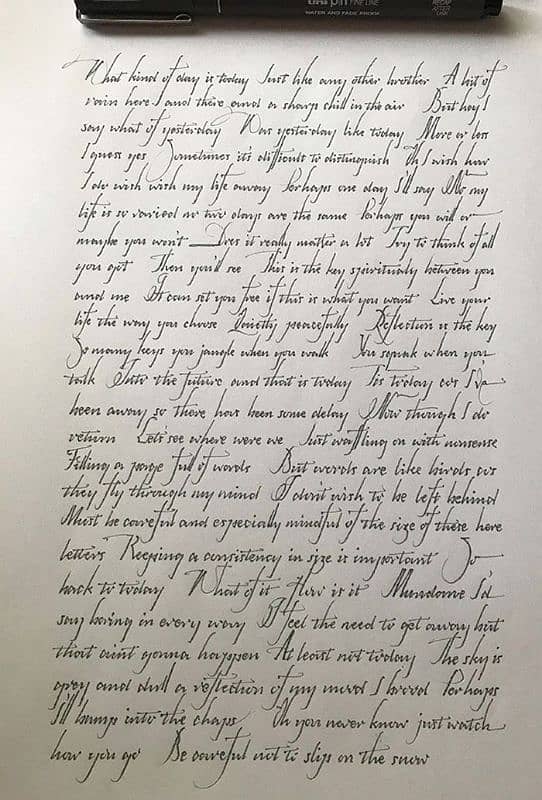 FINE LINE
WATER AND FADE PROOF
RECAP
AFTER
USE
What kind of day is today Just like any other brother A bit of
rain here and there and a sharp chill in the air But hey I
say what of yesterday Was yesterday like today More or less
I guess yes Sometimes it's difficult to distinguish Oh I wish how
I do wish wish my life away Perhaps one day I'll say No my
life is so varied no two days are the same Perhaps you will or
maybe you won't Does it really matter a lot Try to think of all
you got Then you'll see This is the key spiritually between you
and me It can set you free if this is what you want Live your
life the way you choose Quietly peacefully Reflection is the key
So many keys you jangle when you walk You squeak when you
talk Into the future and that is today Tis today cos I've
been away so there has been some delay Now though I do
return Let's see where were we Just waffling on with nonsense
Filling a page full of words But words are like birds cos
they fly through my mind I don't wish to be left behind
Must be careful and especially mindful of the size of these here
letters Keeping a consistency in size is important So
back to today What of it How is it Mundane I'd
say boring in every way I feel the need to get away but
that aint gonna happen At least not today The sky is
grey and dull a reflection of my mood I brood Perhaps
I'll bump into the chaps Oh you never know just watch
how you go Be careful not to slip on the snow